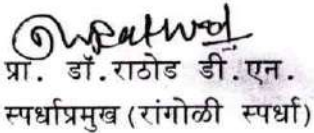 प्रा. डॉ.राठोड डी.एन.
स्पर्धाप्रमुख (रांगोळी स्पर्धा)